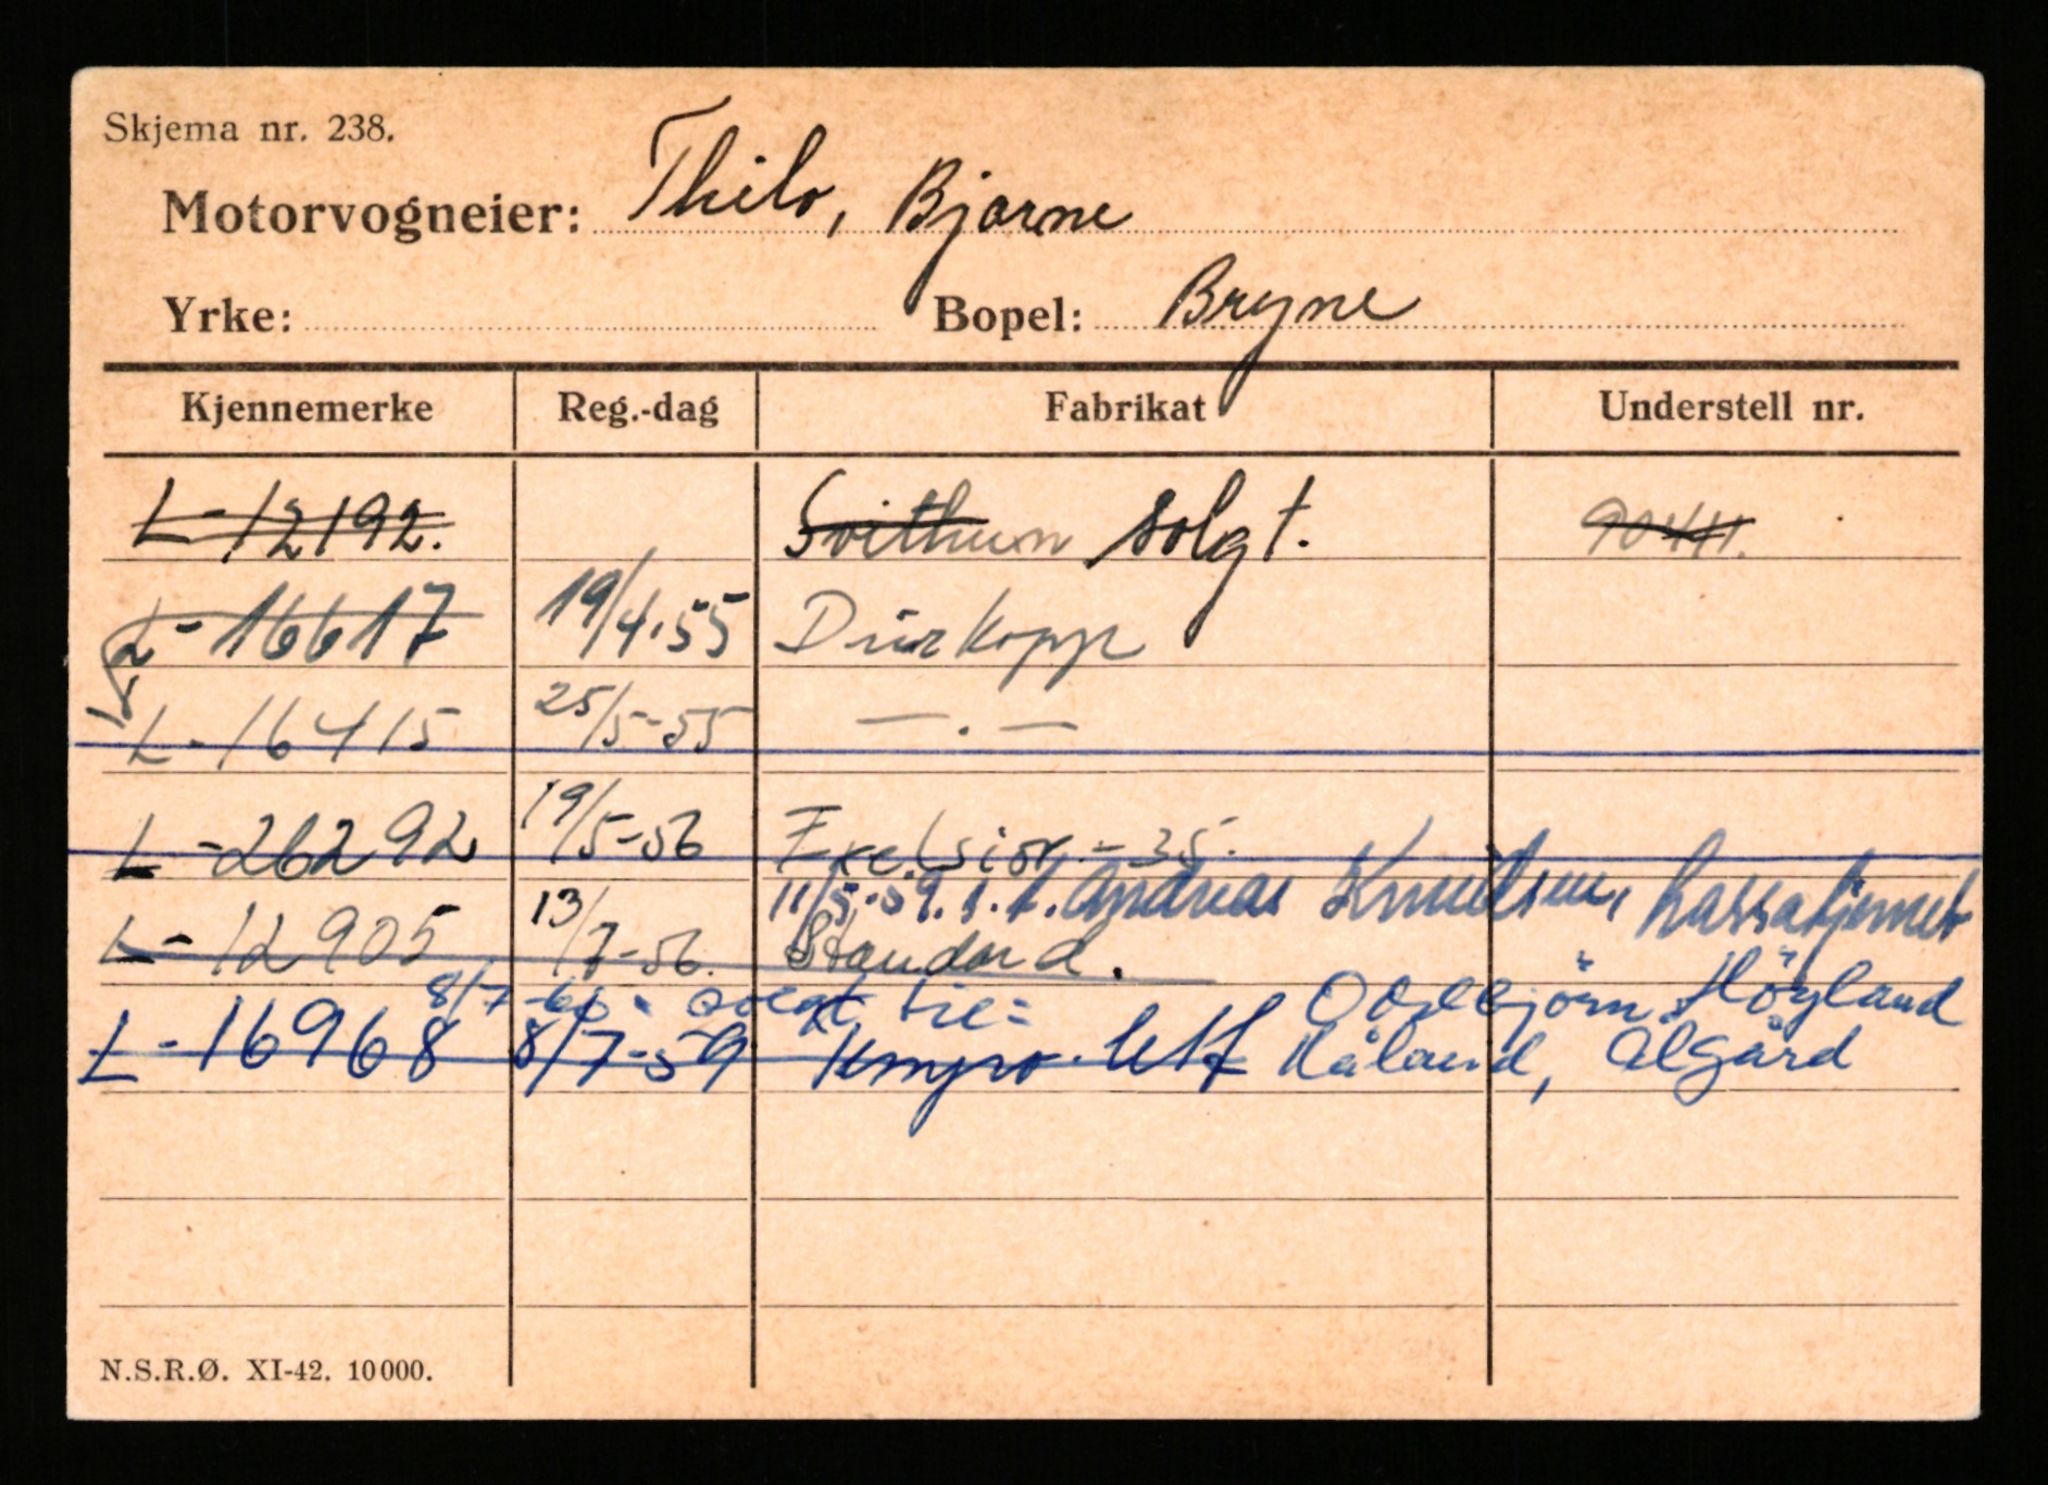 Skjema nr. 238.
Motorvogneier: Thilo, Bjarne
Yrke: Bopel: Bryne
Kjennemerke Reg.-dag Fabrikat Understell nr.
L-12192. Svithun solgt.
L-16617 19/4.55 Dürkopp
L-16415 25/5-55 — . —
L-26292 19/5-56 Exelsior.-35.
11/5-59. s. t. Andreas Knutsen,
L-12905 13/7-56. Standard.
8/7-60 solgt til: Oddbjörn Höyland
L-16968 8/7-59 Tempo Kåland, Ålgård
N.S.R.Ø. XI-42. 10000.